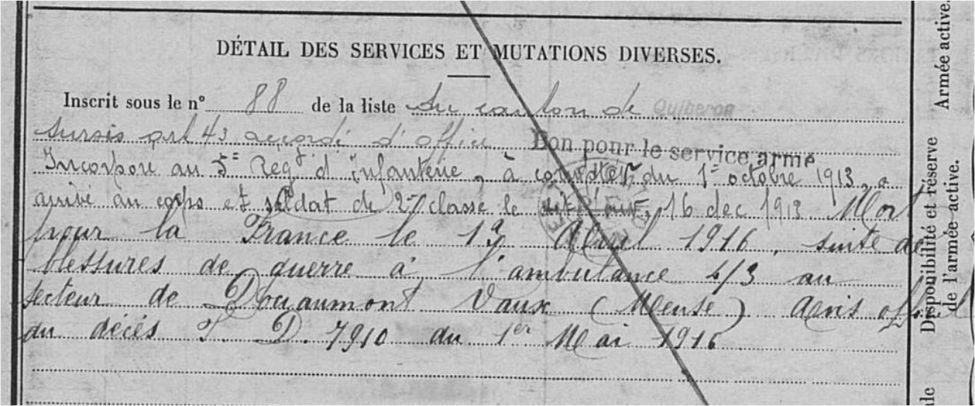 DÉTAIL DES SERVICES ET MUTATIONS DIVERSES.
Inscrit sous le n° 88 de la liste du canton de Quiberon
Sursis art 43 accordé d'office Bon pour le service armé
Incorporé au 5e Regt d'infanterie, à compter du 1er octobre 1913, a
arrivé au corps et soldat de 2e classe le 16 dec 1913 Mort
pour la France le Avril 1916, suite de
blessures de guerre à l'ambulance 4/3 au
secteur de Douaumont Vaux (Meuse) Avis officiel
du décés T. D. 7910 du 1er Mai 1916
Armée active.
Disponibilité et réserve
de l'armée active.